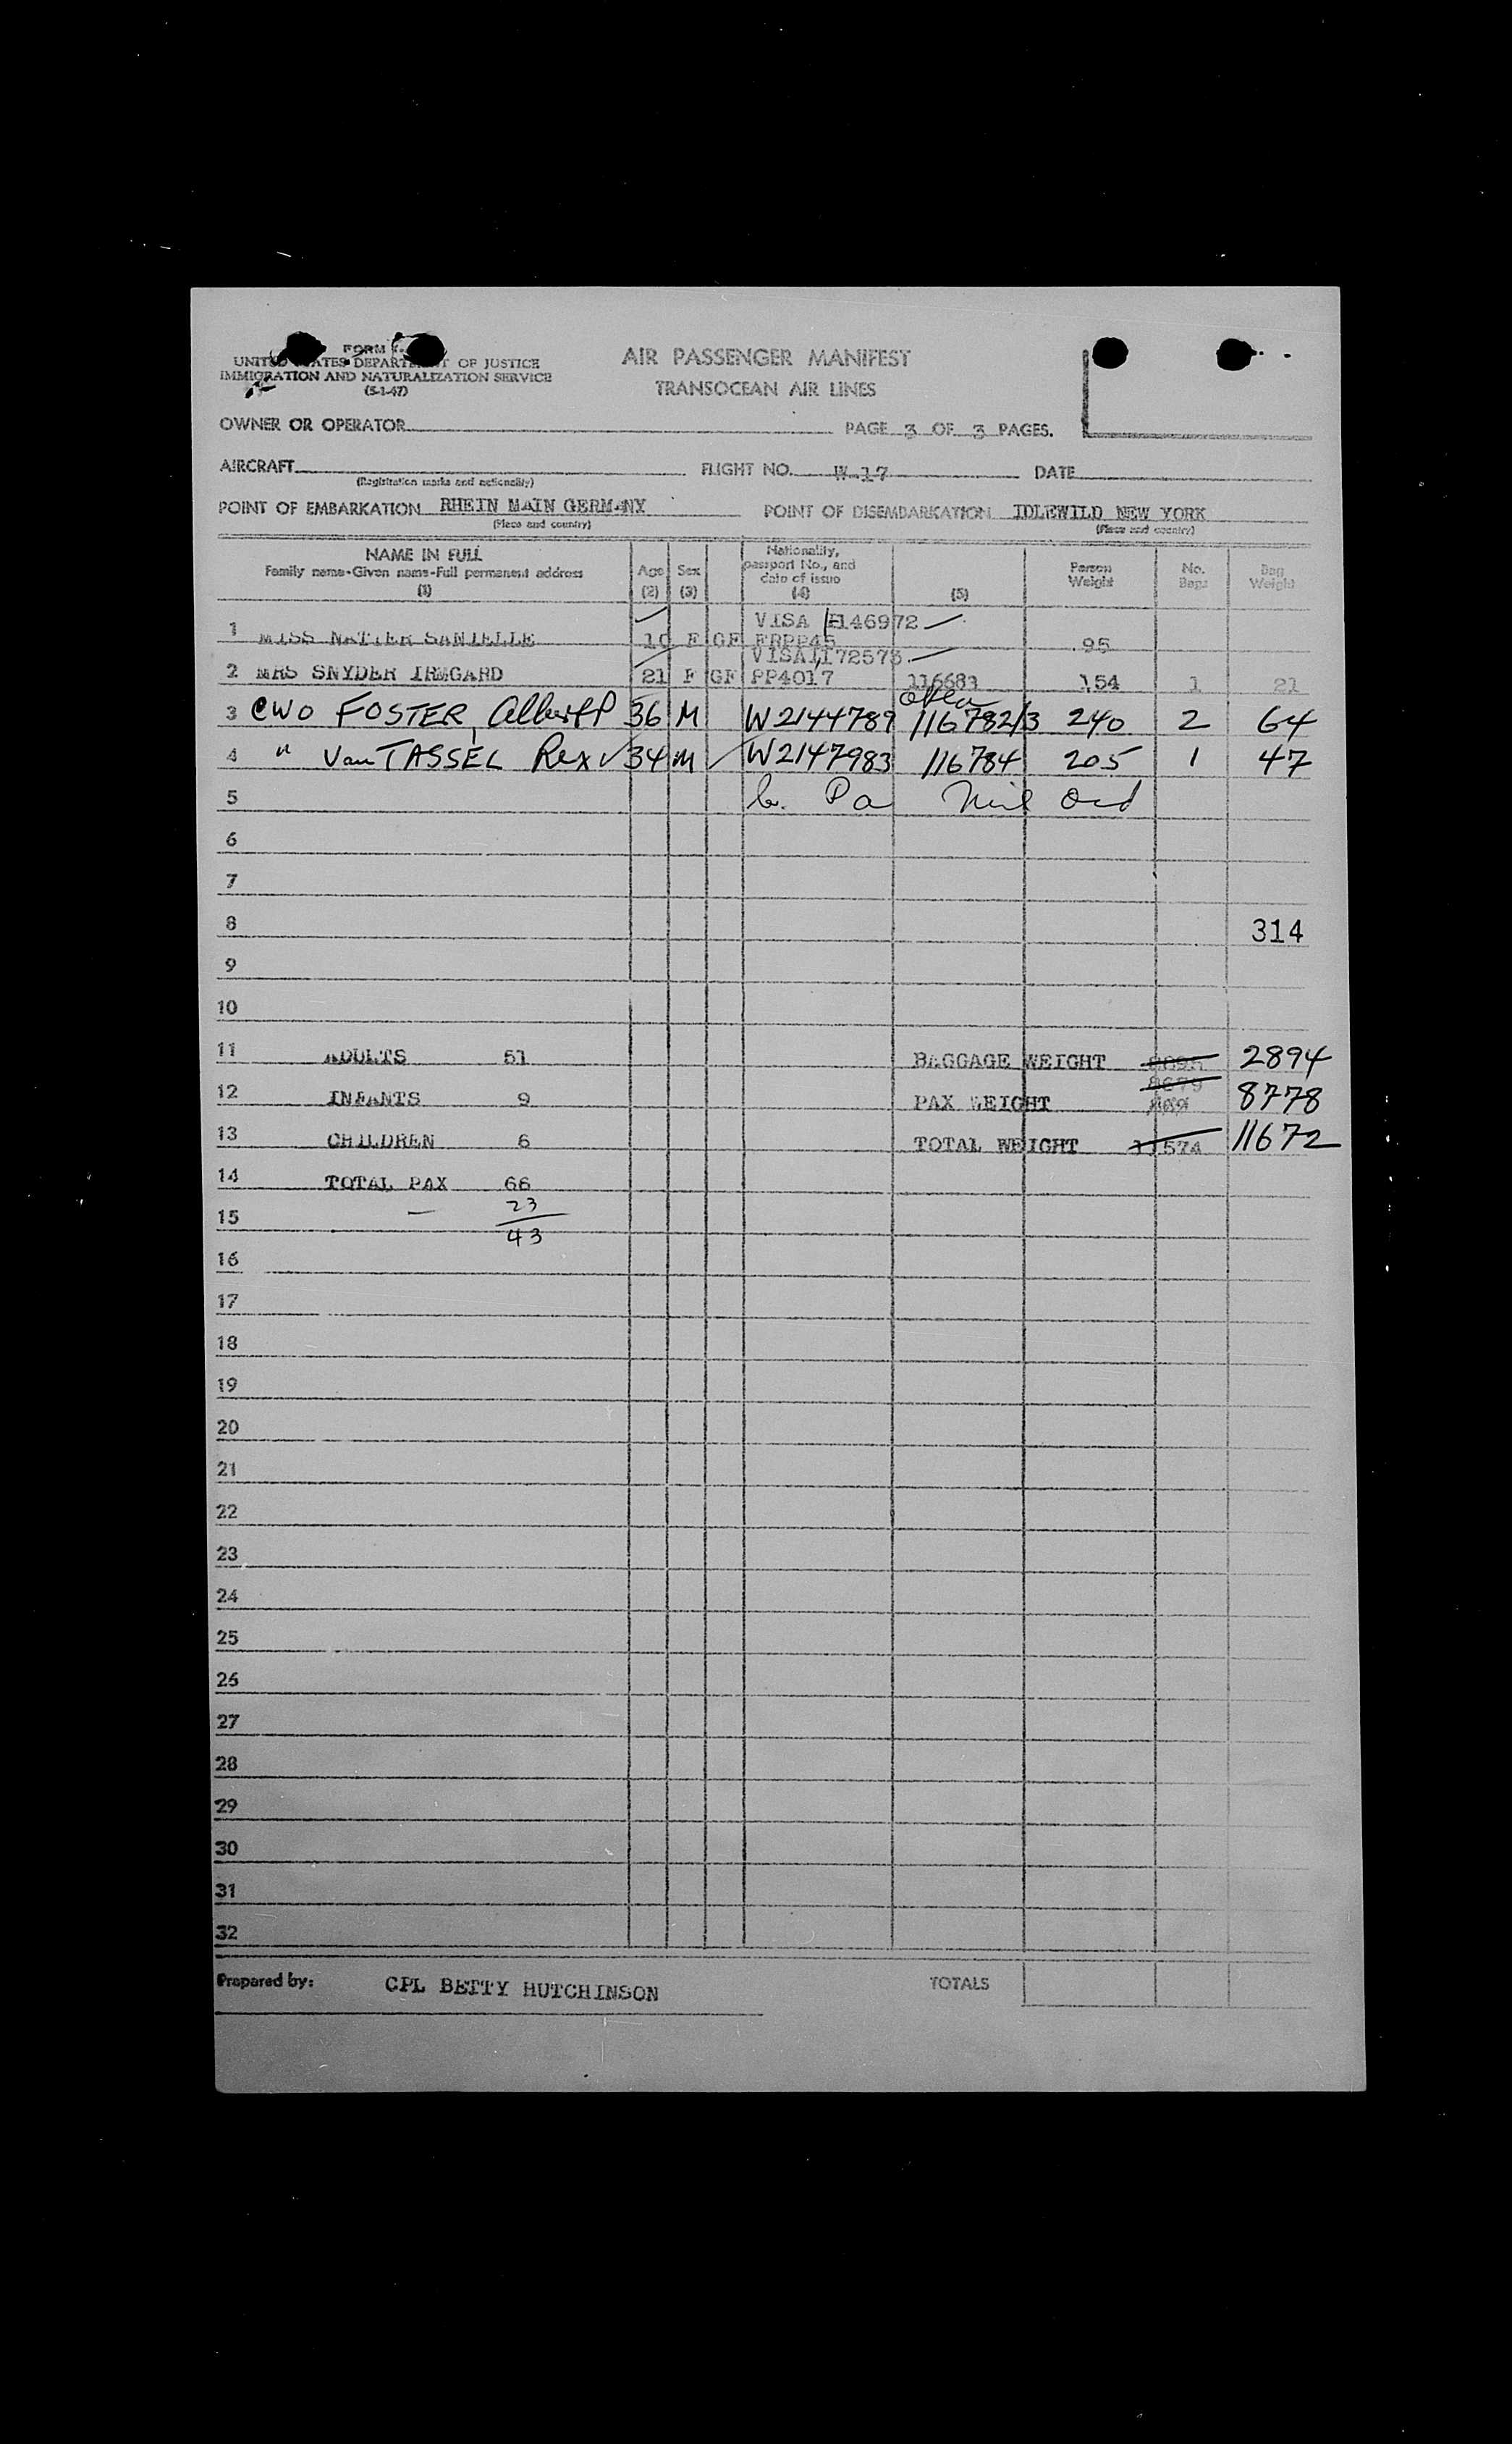 FORM I-
UNITED STATES DEPARTMENT OF JUSTICE
IMMIGRATION AND NATURALIZATION SERVICE
(5-1-47)
AIR PASSENGER MANIFEST
TRANSOCEAN AIR LINES
OWNER OR OPERATOR
PAGE 3 OF 3 PAGES.
AIRCRAFT
(Registration marks and nationality)
FLIGHT NO. W-17
DATE
POINT OF EMBARKATION RHEIN MAIN GERMANY
(Place and country)
POINT OF DISEMBARKATION IDLEWILD NEW YORK
(Place and country)
NAME IN FULL
Family name-Given name-Full permanent address
(1)
Age
(2)
Sex
(3)
Nationality,
passport No., and
date of issue
(4)
(5)
Person
Weight
No.
Bags
Bag
Weight
VISA 146972
1 MISS NATTER SANIELLE 10 F GF FRPP45 95
VISA 172573
2 MRS SNYDER IRMGARD 21 F GF PP4017 116681 154 1 21
3 CWO FOSTER, Albert P 36 M W2144789 116782/3 240 2 64
4 " Van TASSEL Rex 34 M W2147983 116784 205 1 47
5 Mil Ord
6
7
8 314
9
10
11 ADULTS 51 BAGGAGE WEIGHT 2894
12 INFANTS 9 PAX WEIGHT 8679 8778
13 CHILDREN 6 TOTAL WEIGHT 11574 11672
14 TOTAL PAX 66
— 23
15 43
16
17
18
19
20
21
22
23
24
25
26
27
28
29
30
31
32
Prepared by: CPL BETTY HUTCHINSON
TOTALS